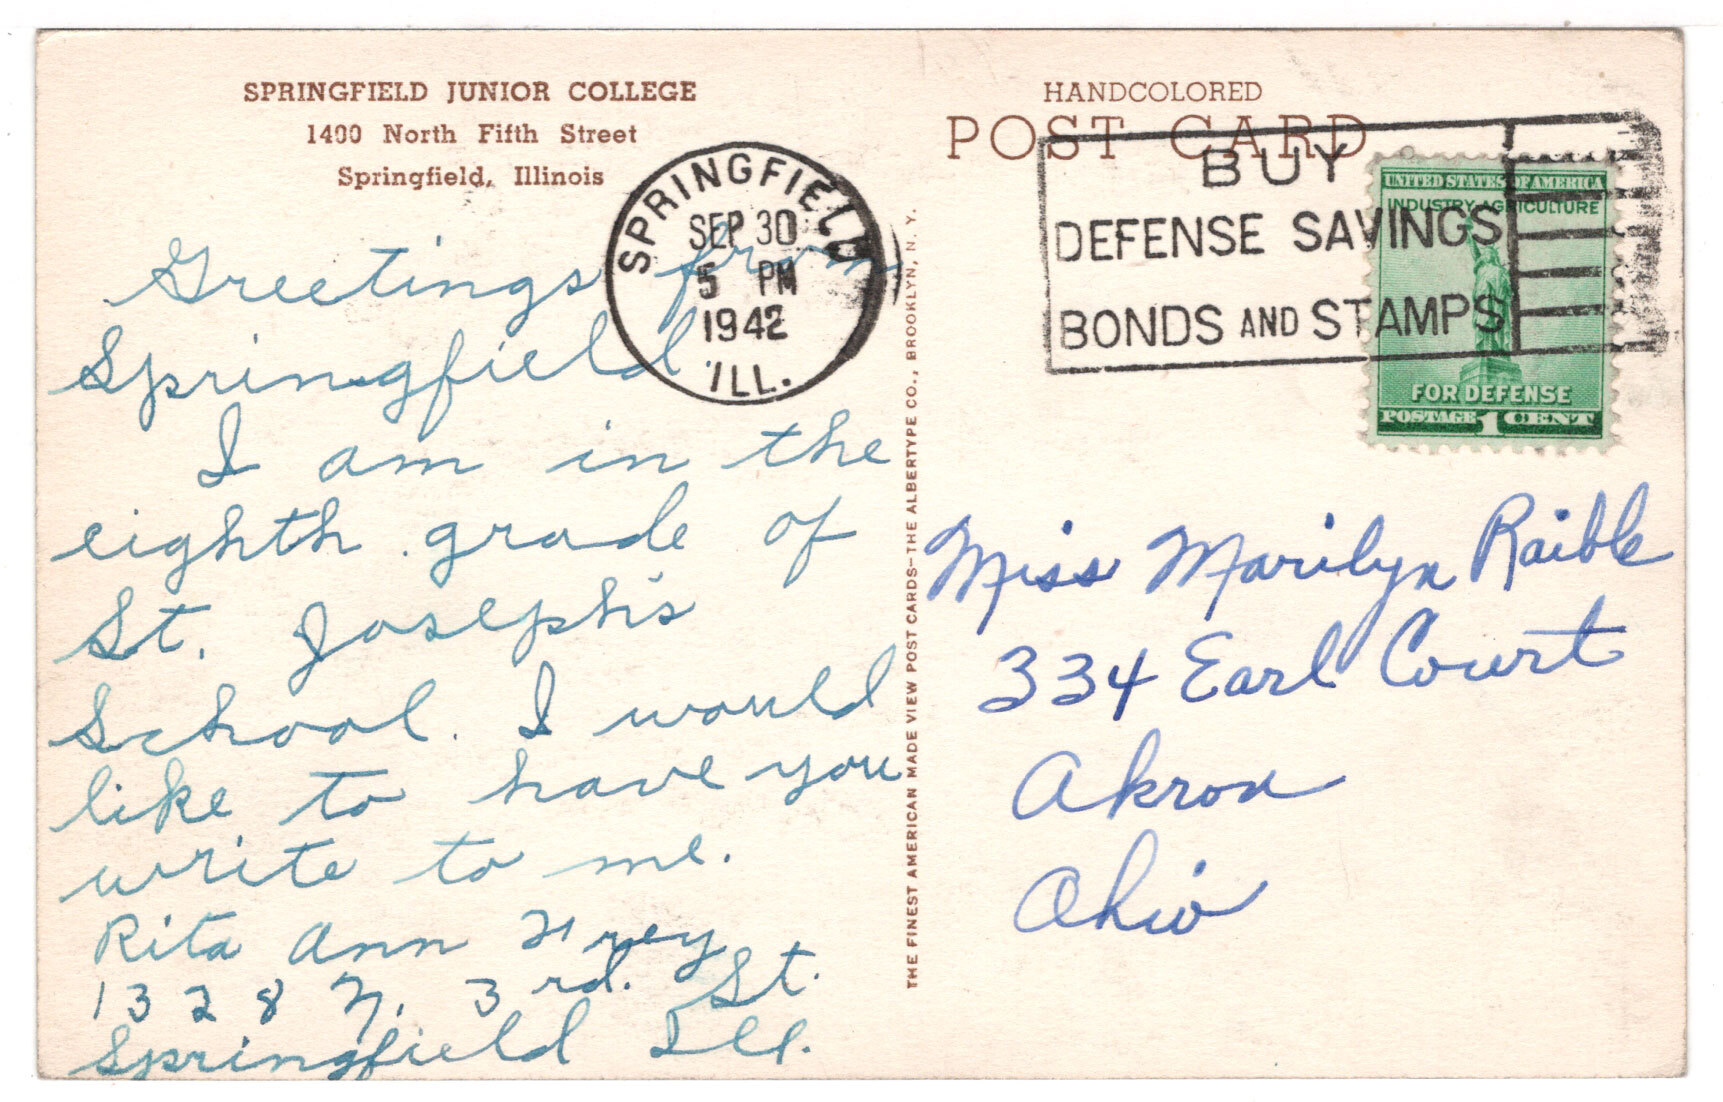 SPRINGFIELD JUNIOR COLLEGE
1400 North Fifth Street
Springfield, Illinois
Greetings from
Springfield.
I am in the
eighth grade of
St. Joseph's
School. I would
like to have you
write to me.
Rita Ann Frey
1328 N. 3rd. St.
Springfield Ill.
SPRINGFIELD
SEP 30
5 PM
1942
ILL.
THE FINEST AMERICAN MADE VIEW POST CARDS—THE ALBERTYPE CO., BROOKLYN, N. Y.
HANDCOLORED
POST CARD
BUY
DEFENSE SAVINGS
BONDS AND STAMPS
UNITED STATES OF AMERICA
INDUSTRY AGRICULTURE
FOR DEFENSE
POSTAGE 1 CENT
Miss Marilyn Raible
334 Earl Court
Akron
Ohio